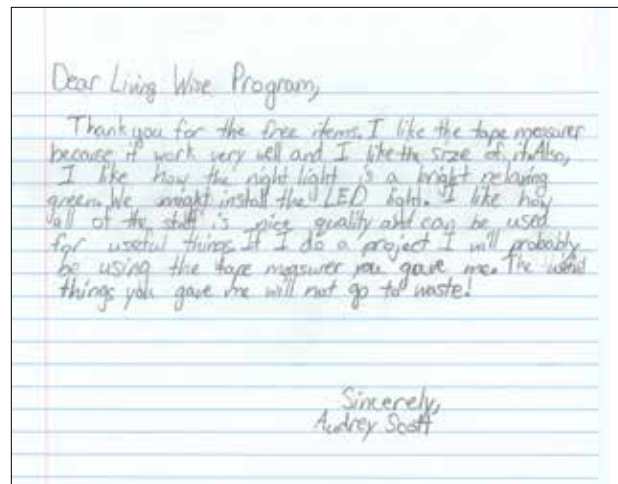 Dear Living Wise Program,
Thank you for the free items. I like the tape measurer
because it work very well and I like the size of it. Also,
I like how the night light is a bright relaxing
green. We might install the LED light. I like how
all of the stuff is nice quality and can be used
for useful things. If I do a project I will probably
be using the tape measurer you gave me. The useful
things you gave me will not go to waste!
Sincerely,
Audrey Scott